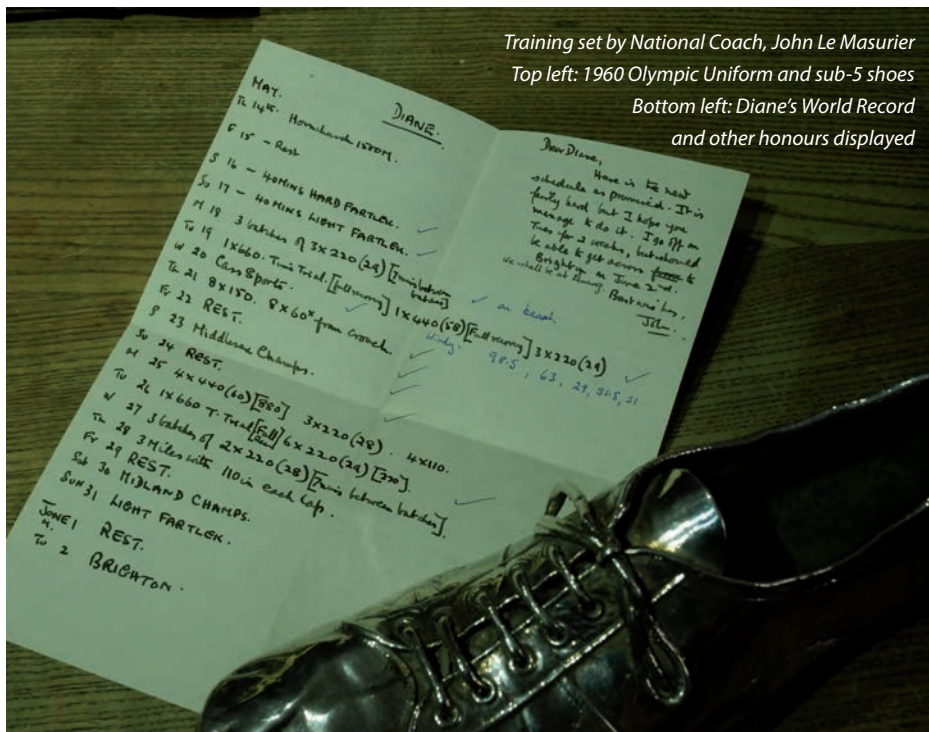 Training set by National Coach, John Le Masurier
Top left: 1960 Olympic Uniform and sub-5 shoes
Bottom left: Diane's World Record
and other honours displayed
DIANE.
MAY.
Th 14th. Hornchurch 1500M.
F 15 - Rest
S 16 - 40MINS HARD FARTLEK.
Su 17 - 40 MINS LIGHT FARTLEK.
M 18 3 batches of 3x220(29) [7mins between batches] ✓ on beach.
Tu 19 1x660. Time Trial. [Full recovery] 1x440(58) [Full recovery] 3x220(29) ✓
Windy. 98.5, 63, 29, 31.5, 31.
W 20 Civs Sports.
Th 21 8x150. 8x60x from crouch.
Fr 22 REST.
S 23 Middlesex Champs.
Su 24 REST.
M 25 4x440(60) [880] 3x220(28). 4x110.
Tu 26 1x660 T. Trial [Full Rec] 6x220(29) [330].
W 27 3 batches of 2x220(28) [7mins between batches].
Th 28 3 Miles with 110 in each lap.
Fr 29 REST.
Sat 30 MIDLAND CHAMPS.
SUN 31 LIGHT FARTLEK.
JUNE 1 REST.
M.
Tu 2 BRIGHTON.
Dear Diane,
Here is the new
schedule as promised. It is
fairly hard but I hope you
manage to do it. I go off on
Tues for 2 weeks, but should
be able to get across to
Brighton on June 2nd.
We shall be at Best wishes,
John.